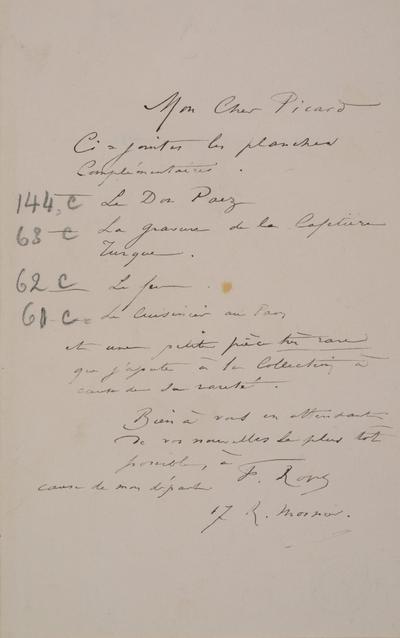 Mon Cher Picard
Ci=jointes les planches
Complémentaires.
144, C Le Don Paez
63 C La gravure de la Cafetière
Turque.
62 C Le
61 C = Le Cuisinier au
et une petite pièce très rare
que j'ajoute à la Collection, à
cause de sa rareté.
Bien à vous en attendant
de vos nouvelles le plus tôt
possible, à
cause de mon départ
17 R.